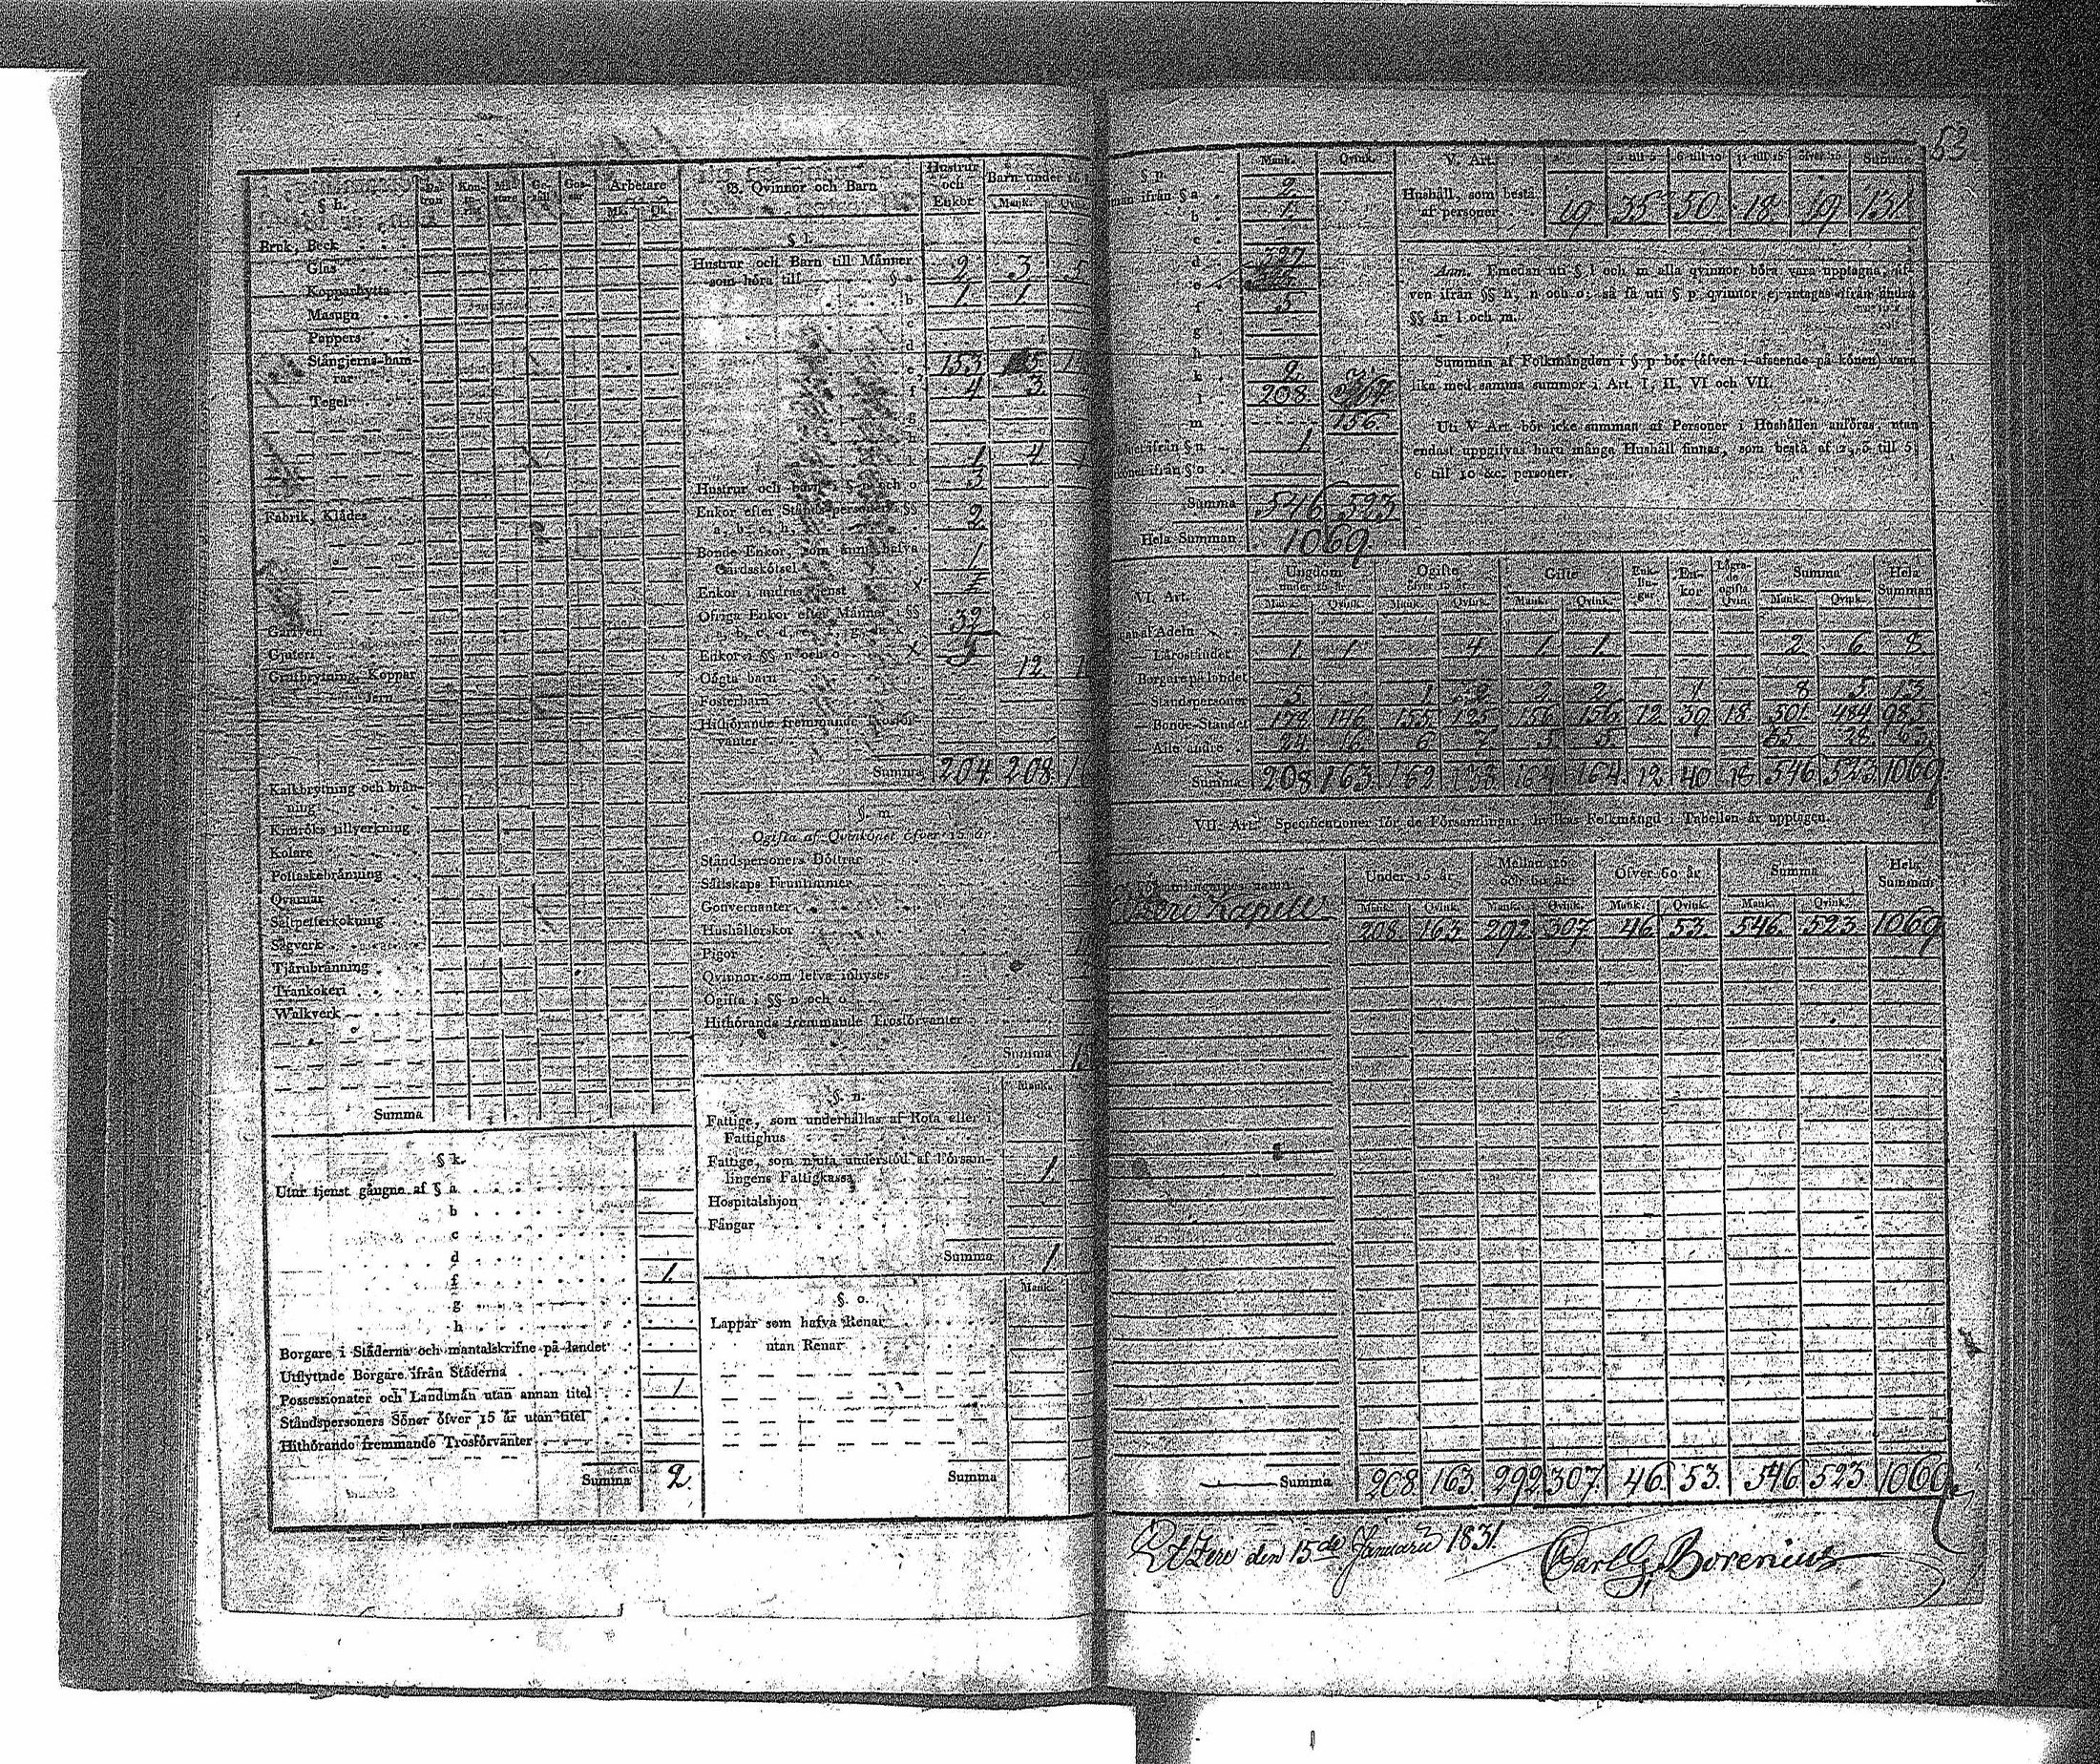 § h.
Arbetare
Mk. Qk.
Bruk, Beck
Glas
Kopparhytta
Masugn
Pappers
Stångjerns-ham-
rar
Tegel
Fabrik, Klädes
Garfveri
Gjuteri
Grufbrytning, Koppar
Jern
Kalkbrytning och brän-
ning
Kimröks tillverkning
Kolare
Pottaskebränning
Qvarnar
Salpetterkokning
Sågverk
Tjärubränning
Trankokeri
Walkverk
Summa
§ k.
Utur tjenst gångne af § a
b
c
d
f 1.
g
h
Borgare i Städerna och mantalskrifne på landet
Utflyttade Borgare ifrån Städerna
Possessionater och Landtmän utan annan titel 1
Ståndspersoners Söner öfver 15 år utan titel
Hithörande fremmande Trosförvanter
Summa 2.
B. Qvinnor och Barn
Hustrur och Enkor
Barn under 15
Mank.
§ l.
Hustrur och Barn till Männer
som höra till § a 2. 3. 5
b 1. 1.
c
d
e 153
f 4 3.
g
h
k 1. 4
Hustrur och barn i § n och o 3
Enkor efter Ståndspersoner i §§
a, b, c, h, 2.
Bonde Enkor, som ännu hafva
Gårdsskötsel 1
Enkor i andras tjenst
Öfriga Enkor efter Männer i §§
a, b, c, d, e, f, g, h, k
Enkor i §§ n och o
Oägta barn 12.
Fosterbarn
Hithörande fremmande Trosför-
vanter
Summa 204. 208.
§. m.
Ogifta af Qvinkönet öfver 15 år.
Ståndspersoners Döttrar
Sällskaps Fruntimmer
Gouvernanter
Hushållerskor
Pigor
Qvinnor som lefva inhyses
Ogifta i §§ n och o
Hithörande fremmande Trosförvanter
Summa
§. n.
Mank.
Fattige, som underhållas af Rota eller i
Fattighus
Fattige, som njuta understöd af Försam-
lingens Fattigkassa 1.
Hospitalshjon
Fångar
Summa 1
§. o.
Mank.
Lappar som hafva Renar
utan Renar
Summa
53
§ p.
Mank. Qvink.
ifrån § a 2.
b 1.
c
d 327
e
f 3
g
h
k 2.
l 208
m 156.
ifrån § n 1.
ifrån § o
Summa 546 523
Hela Summan 1069.
V. Art.
3 till 5 6 till 10 11 till 15 öfver 15 Summa
Hushåll, som bestå
af personer 19 35 50 18 19 131
Anm. Emedan uti § l och m alla qvinnor böra vara upptagna, äf-
ven ifrån §§ h, n och o; så få uti § p qvinnor ej intagas ifrån andra
§§ än l och m.
Summan af Folkmängden i § p bör (äfven i afseende på könen) vara
lika med samma summor i Art. I, II, VI och VII.
Uti V Art. bör icke summan af Personer i Hushållen anföras, utan
endast uppgifvas huru många Hushåll finnas, som bestå af 2, 3 till 5
6 till 10 &c. personer.
VI. Art.
Ungdom under 15 år Ogifte öfver 15 år Gifte Enk-lin-gar En-kor Lägra-de ogifta Qvin. Summa Hela Summan
Mank. Qvink. Mank. Qvink. Mank. Qvink. Mank. Qvink.
af Adeln
Lärostånd 1. 1 4 1 1. 2 6. 8.
Borgare på landet
Ståndspersoner 5 1 2 2 2. 1 8 5 13
Bonde-Ståndet 178 146 155 125 156 156 12 39 18 501 484 985
Alle andre 24 16 6 7 5 5. 35. 28. 63
Summa 208 163. 162 138 164 164. 12. 40 18 546 523. 1069.
VII. Art. Specificationer för de Församlingar, hvilkas Folkmängd i Tabellen är upptagen.
Församlingarnes namn Under 15 år Mellan 15 och 60 år Öfver 60 år Summa Hela Summan
Mank. Qvink. Mank. Qvink. Mank. Qvink. Mank. Qvink.
Etzeri Kapell 208. 163 292 307 46 53. 546. 523 1069
Summa 208 163. 292 307. 46. 53. 546 523 1069.
Etzeri den 15de Januarii 1831.
Carl G. Borenius